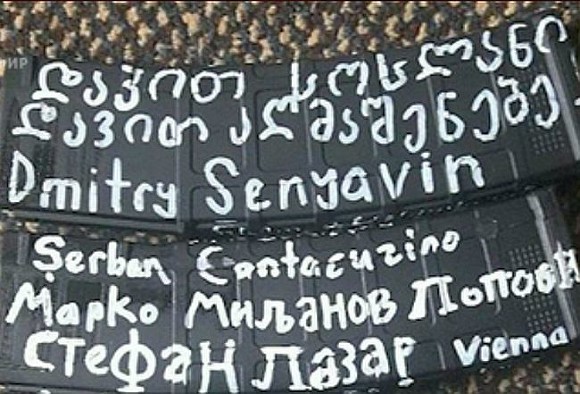 ИР
დავით სოსლანი
დავით აღმაშენებე
Dmitry Senyavin
Şerban Cantacuzino
Марко Миљанов Попови
Стефан Лазар Vienna